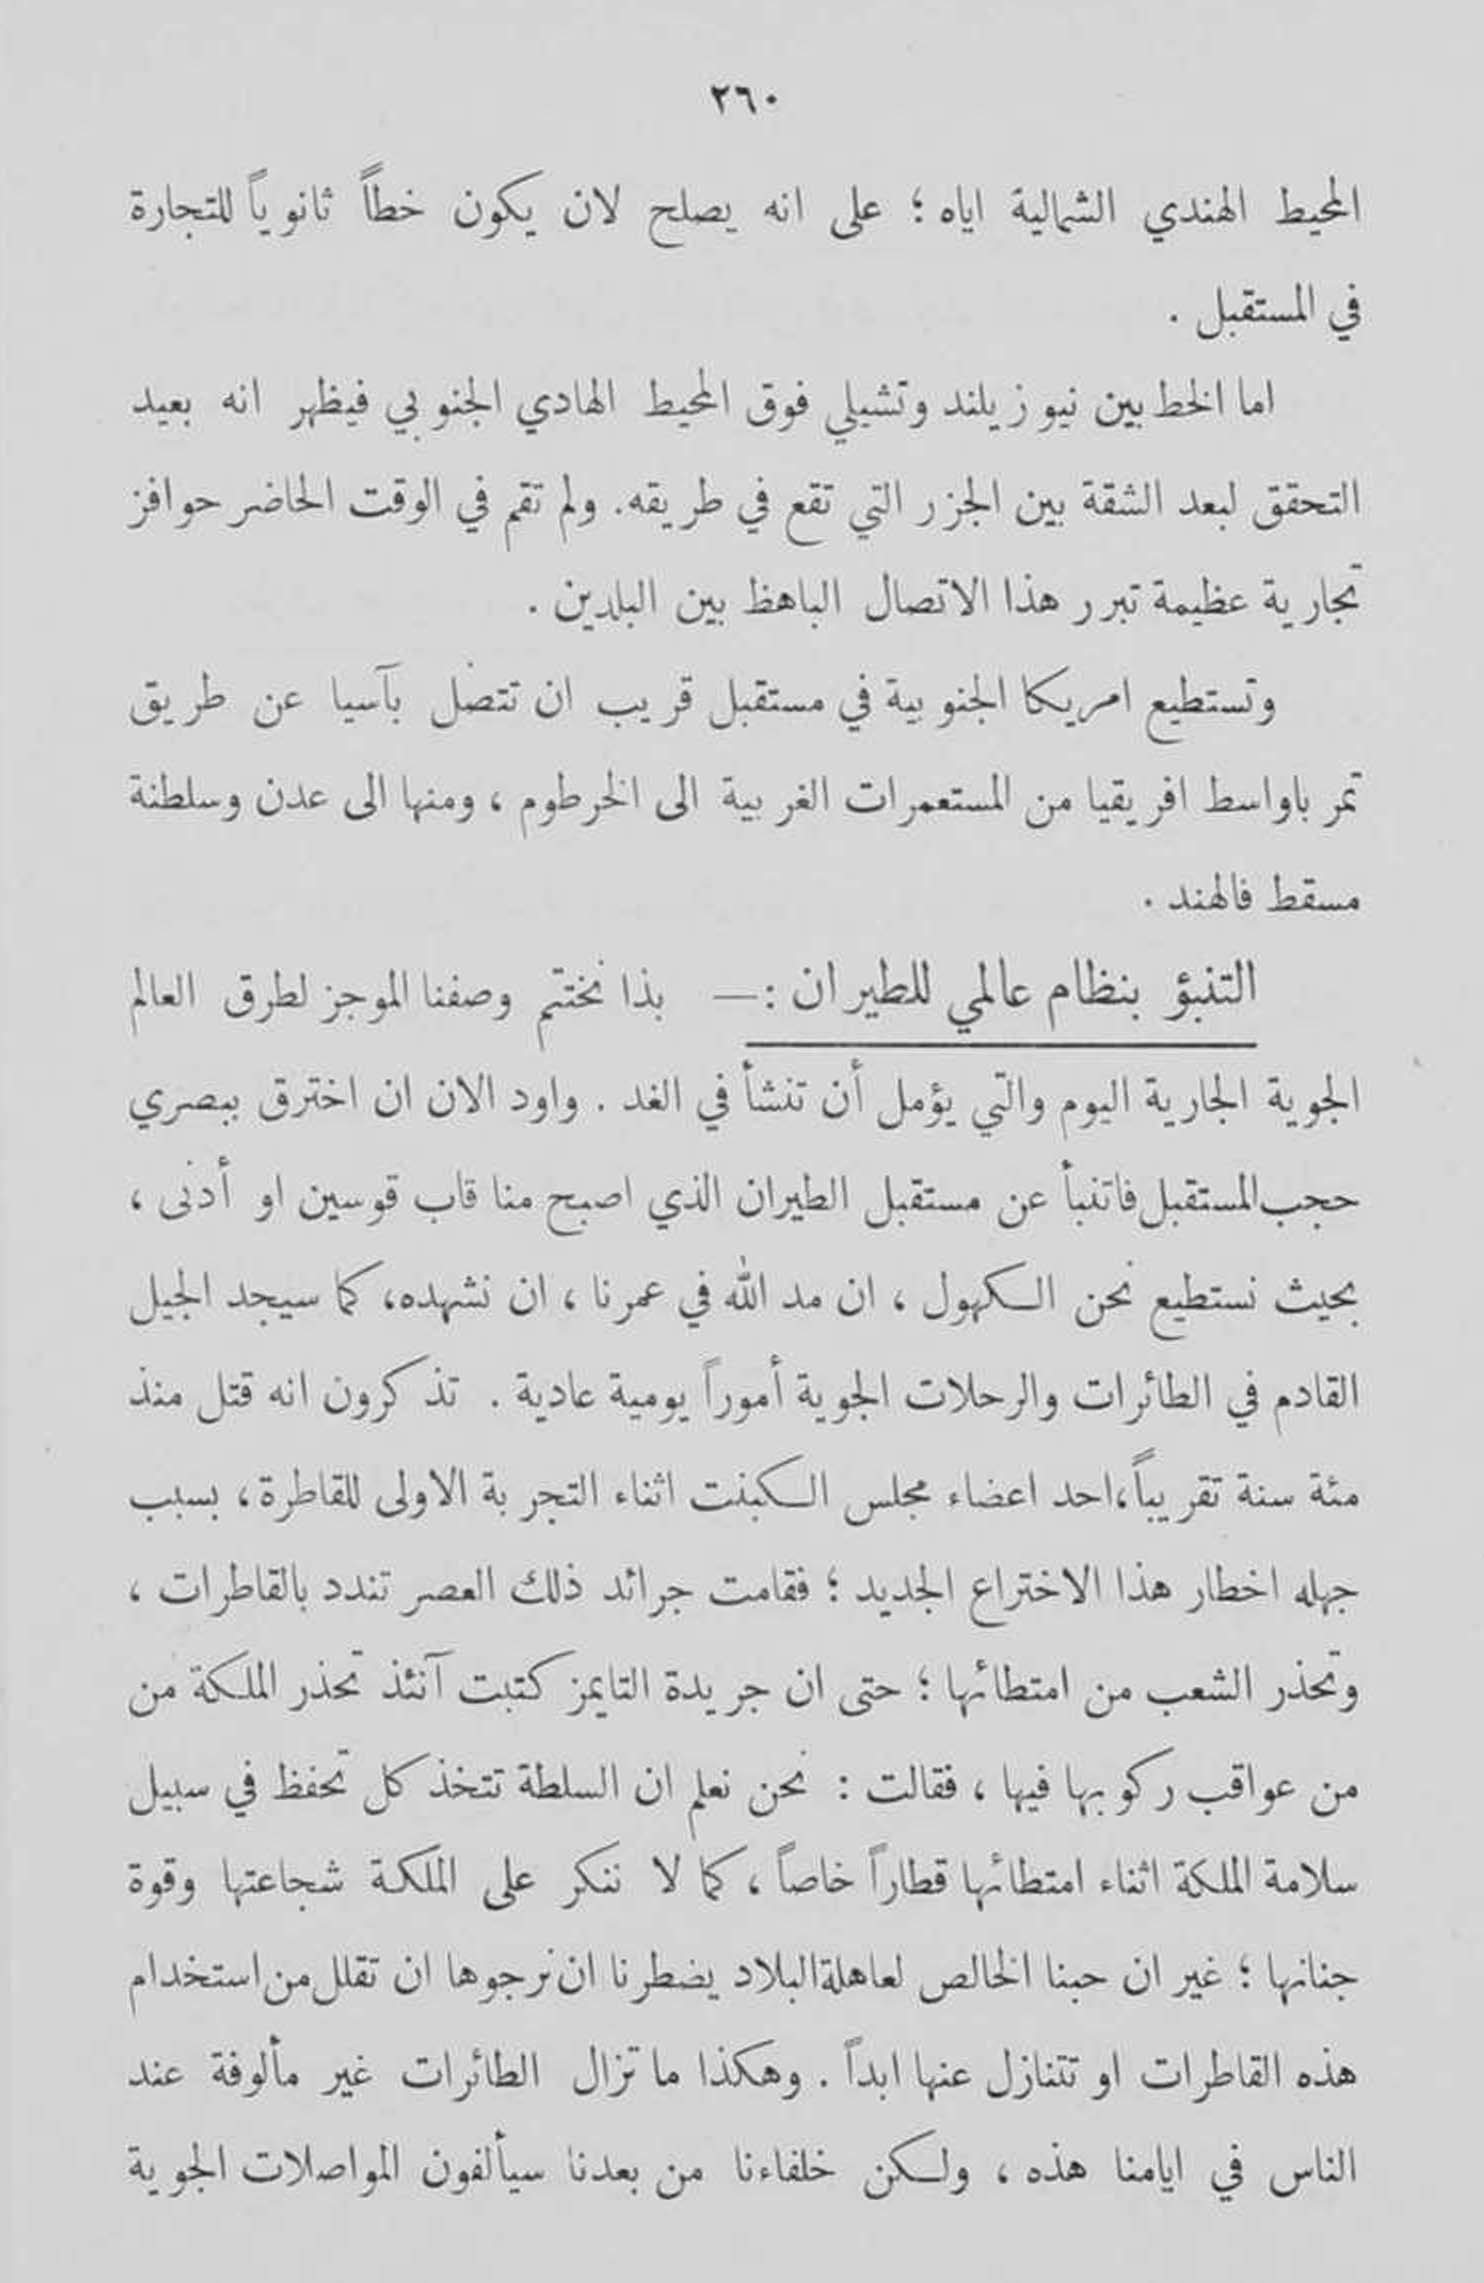 ٢٦٠
المحيط الهندي الشمالية اياه ؛ على انه يصلح لان يكون خطاً ثانوياً للتجارة
في المستقبل .
اما الخط بين نيوزيلند وتشيلي فوق المحيط الهادي الجنوبي فيظهر انه بعيد
التحقق لبعد الشقة بين الجزر التي تقع في طريقه. ولم تقم في الوقت الحاضر حوافز
تجارية عظيمة تبرر هذا الاتصال الباهظ بين البلدين .
وتستطيع امريكا الجنوبية في مستقبل قريب ان تتصل بآسيا عن طريق
تمر باواسط افريقيا من المستعمرات الغربية الى الخرطوم ، ومنها الى عدن وسلطنة
مسقط فالهند .
التنبؤ بنظام عالمي للطيران :— بذا نختتم وصفنا الموجز لطرق العالم
الجوية الجارية اليوم والتي يؤمل أن تنشأ في الغد . واود الان ان اخترق ببصري
حجب المستقبل فاتنبأ عن مستقبل الطيران الذي اصبح منا قاب قوسين او أدنى ،
بحيث نستطيع نحن الكهول ، ان مد الله في عمرنا ، ان نشهده، كما سيجد الجيل
القادم في الطائرات والرحلات الجوية أموراً يومية عادية . تذكرون انه قتل منذ
مئة سنة تقريباً،احد اعضاء مجلس الكبنت اثناء التجربة الاولى للقاطرة ، بسبب
جهله اخطار هذا الاختراع الجديد ؛ فقامت جرائد ذلك العصر تندد بالقاطرات ،
وتحذر الشعب من امتطائها ؛ حتى ان جريدة التايمز كتبت آنئذ تحذر الملكة من
من عواقب ركوبها فيها ، فقالت : نحن نعلم ان السلطة تتخذ كل تحفظ في سبيل
سلامة الملكة اثناء امتطائها قطاراً خاصاً ، كما لا ننكر على الملكة شجاعتها وقوة
جنانها ؛ غير ان حبنا الخالص لعاهلة البلاد يضطرنا ان نرجوها ان تقلل من استخدام
هذه القاطرات او تتنازل عنها ابداً . وهكذا ما تزال الطائرات غير مألوفة عند
الناس في ايامنا هذه ، ولكن خلفاءنا من بعدنا سيألفون المواصلات الجوية